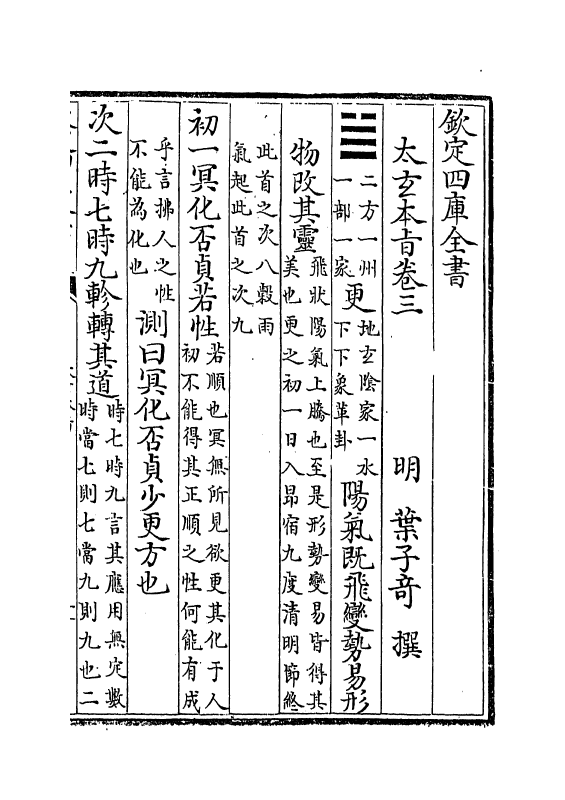 欽定四庫全書
太玄本㫖卷三　明　葉子奇　撰
二方一州
一部一家
更
地玄陰家一水
下下象革卦
陽氣既飛變勢易形
物改其靈
飛狀陽氣上騰也至是形勢變易皆得其
美也更之初一日入昴宿九度清明節終
此首之次八穀雨
氣起此首之次九
初一冥化否貞若性
若順也冥無所見欲更其化于人
初不能得其正順之性何能有成
乎言拂人之性
不能為化也
測曰冥化否貞少更方也
次二時七時九軫轉其道
時七時九言其應用無定數
時當七則七當九則九也二